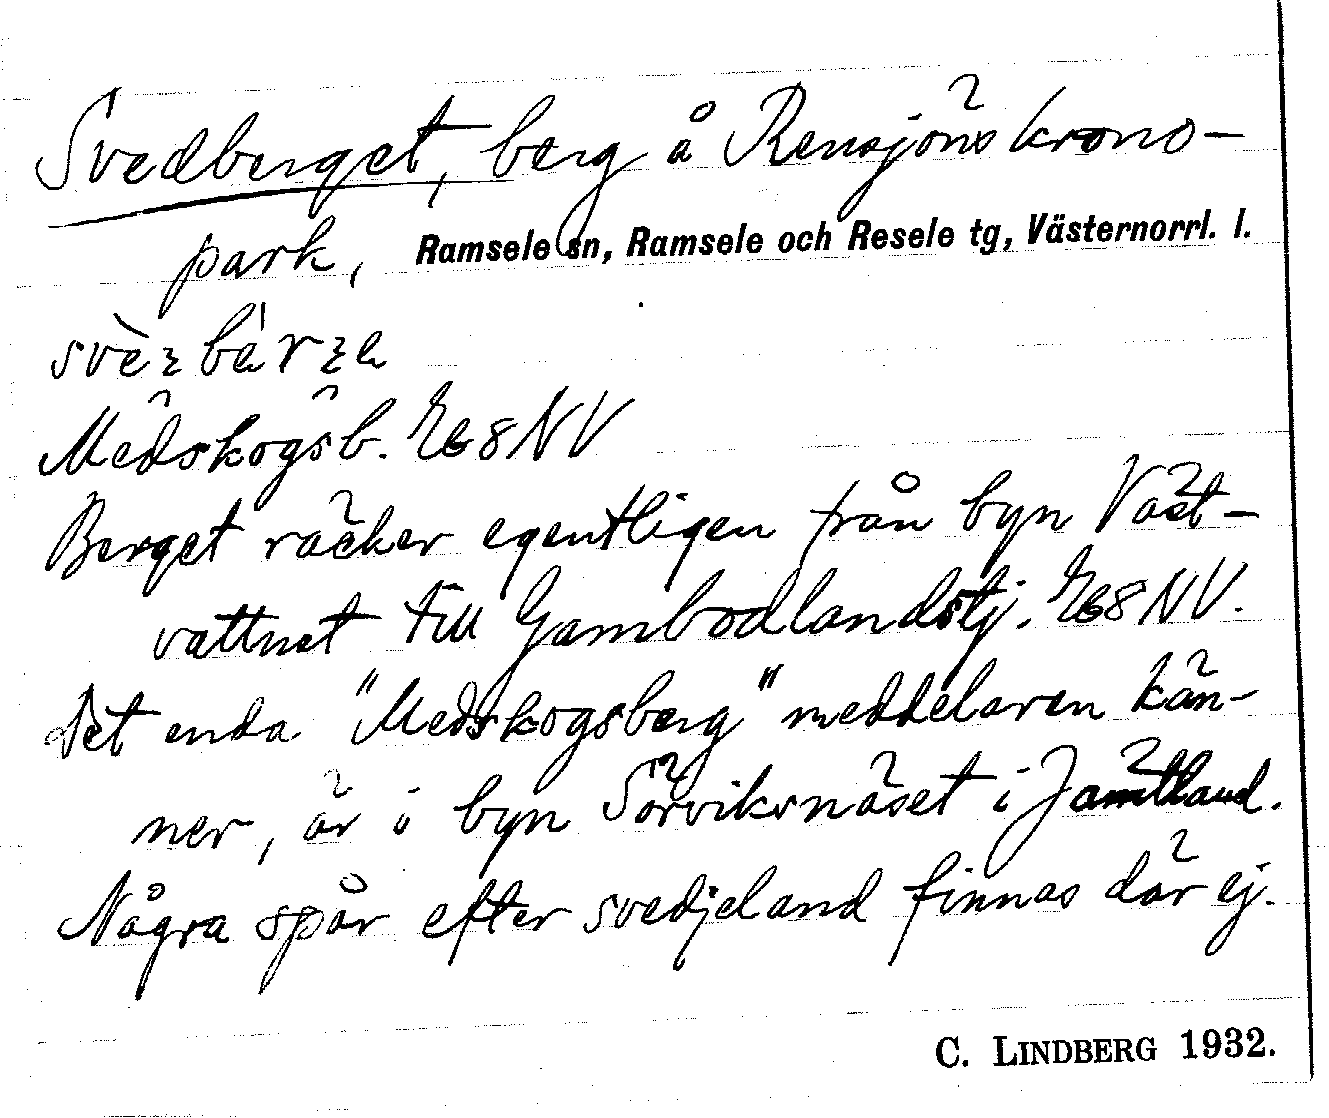 Svedberget, berg å Rensjöns krono-
park, Ramsele sn, Ramsele och Resele tg, Västernorrl. l.
Medskogsb. Eb 8 NV
Berget räcker egentligen från byn Väst-
vattnet till Gambodlandstj. Eb 8 NV.
Det enda "Medskogsberg" meddelaren kän-
ner, är i byn Sörviksnäset i Jämtland.
Några spår efter svedjeland finnas där ej.
C. LINDBERG 1932.